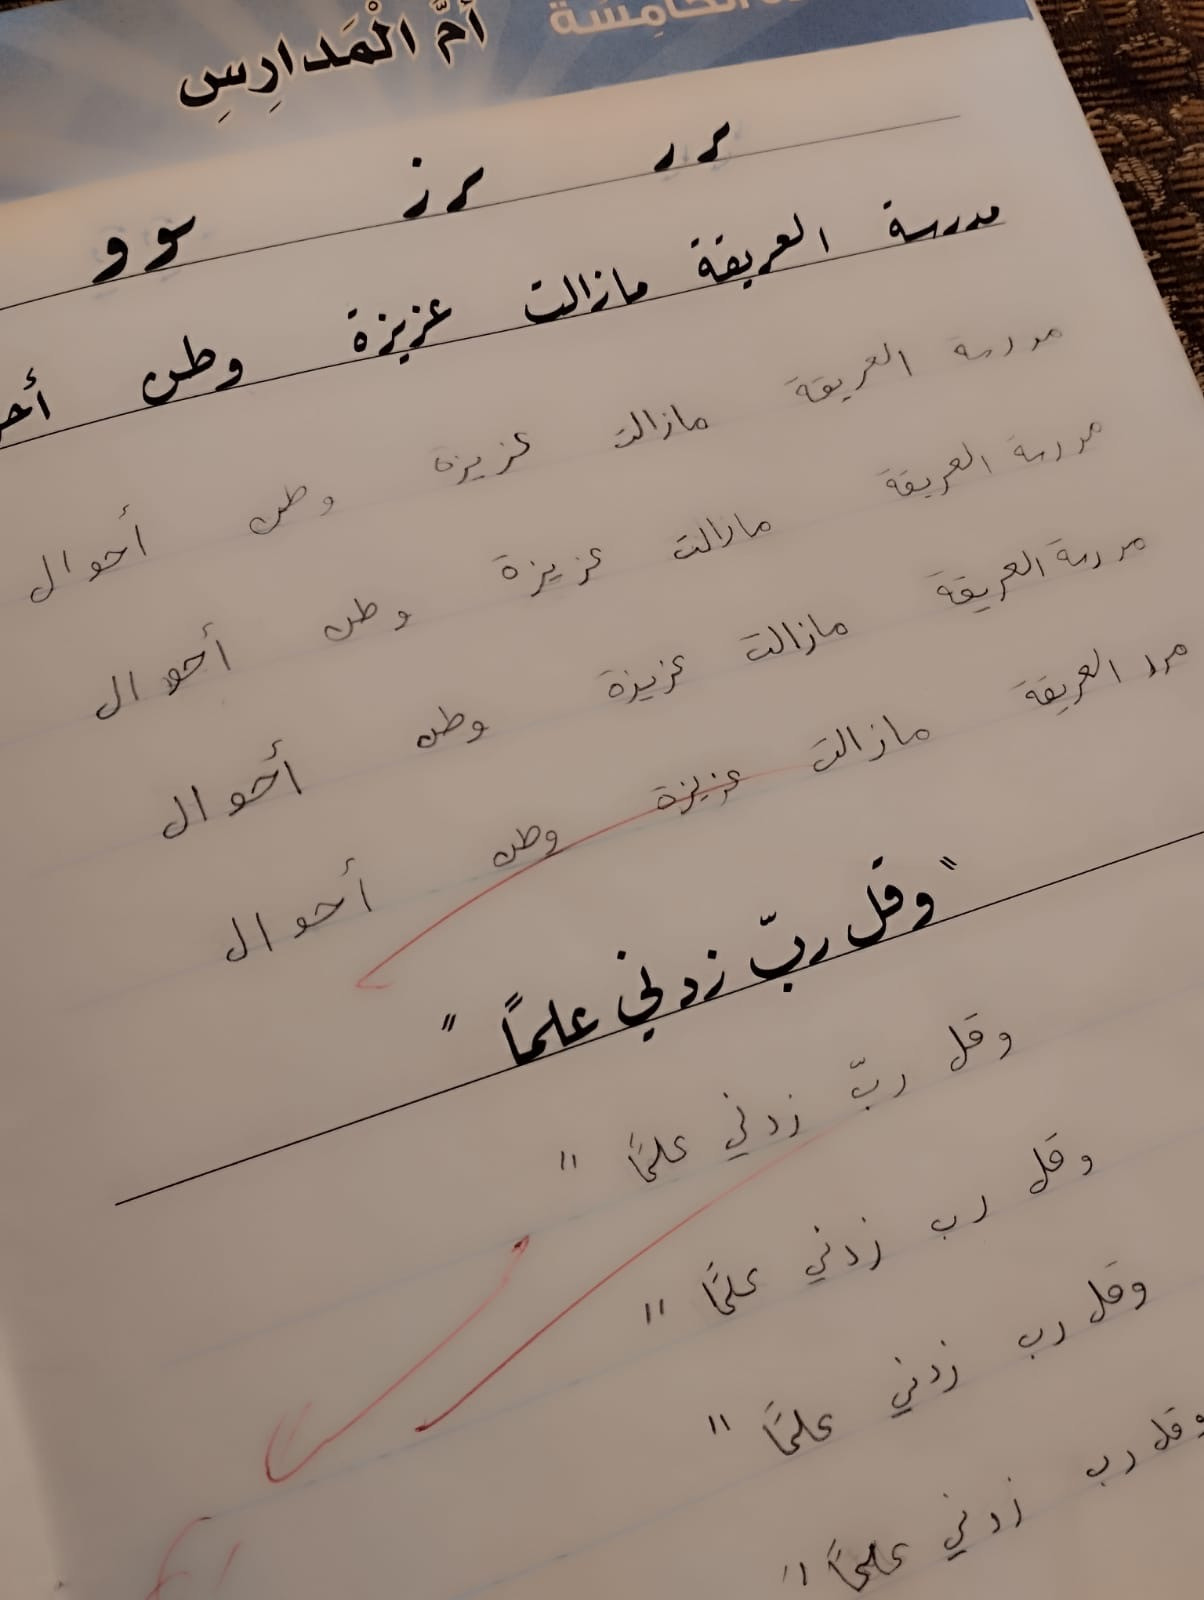 الخامسة
أُمُّ الْمَدارِسِ
ـر ر ـر ز ـو و
مدرسة العريقة مازالت عزيزة وطن
مدرسة العريقة مازالت عزيزة وطن أحوال
مدرسة العريقة مازالت عزيزة وطن أحوال
مدرسة العريقة مازالت عزيزة وطن أحوال
مدر العريقة مازالت عزيزة وطن أحوال
"وقل ربّ زدني علماً"
وقل ربّ زدني علمًا "
وقل رب زدني علمًا "
وقل رب زدني علمًا "
وقل رب زدني علمًا "